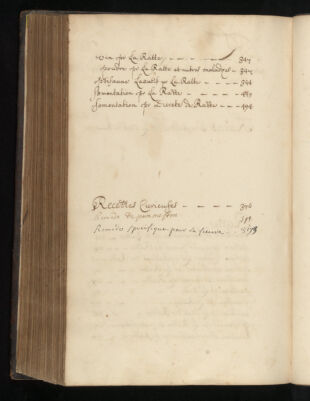 vin pr La Ratte - - - - 347
poudre pr La Ratte et autres maladyes - 342
ptisanne Laxatif pr La Ratte - - - 344
fomentation pr La Ratte - - - -
fomentation pr Dureté de Ratte - - 494
Recettes Curieuses - - - - 376
Remede
Remede specifique pour la fievre - - 378